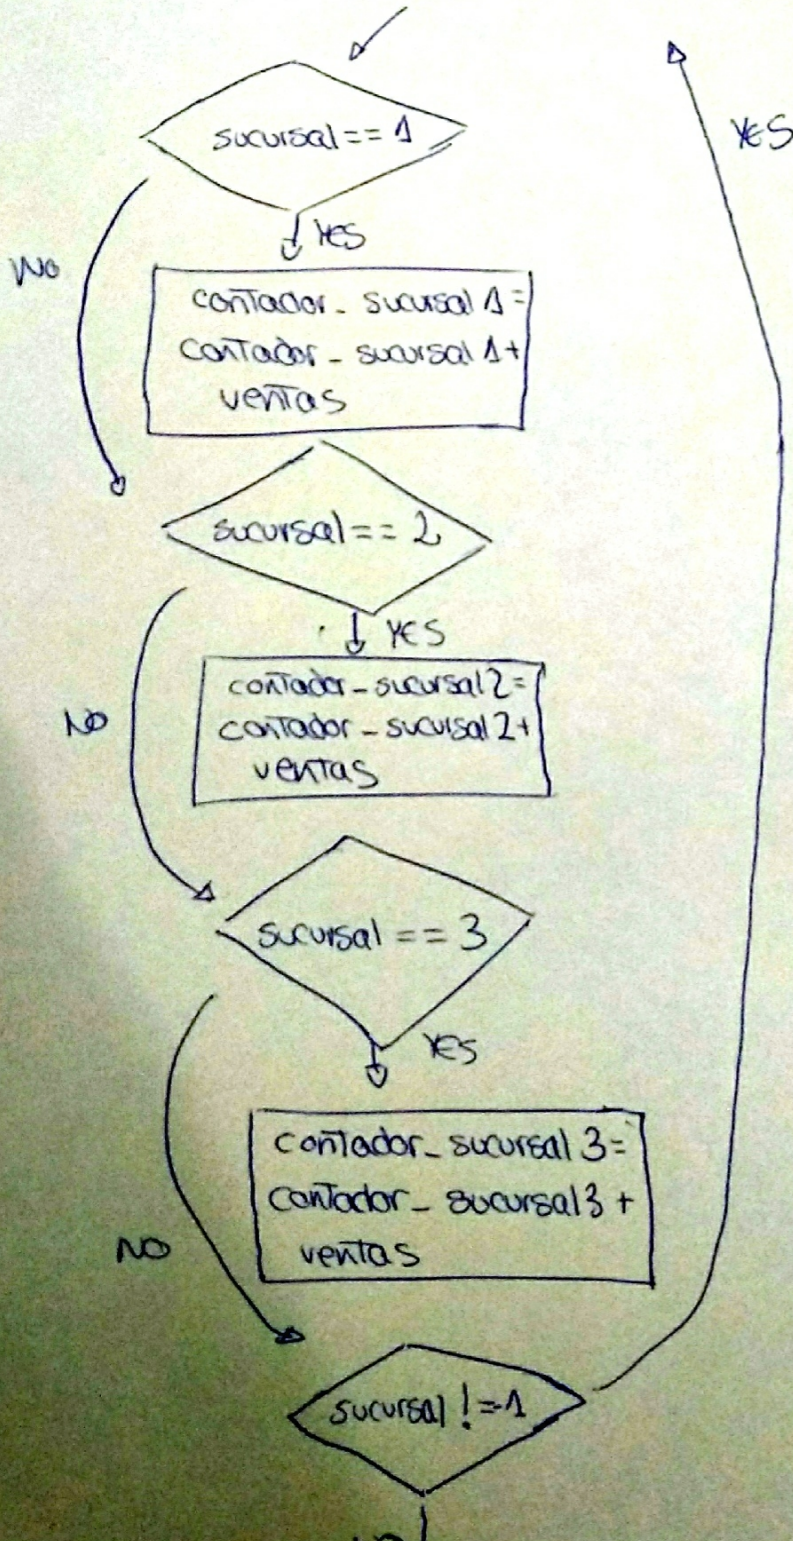 sucursal == 1
YES
YES
NO
contador_ sucursal 1 =
contador_ sucursal 1 +
ventas
sucursal == 2
YES
NO
contador_sucursal 2 =
contador_sucursal 2 +
ventas
sucursal == 3
YES
NO
contador_ sucursal 3 =
contador_ sucursal 3 +
ventas
sucursal != -1